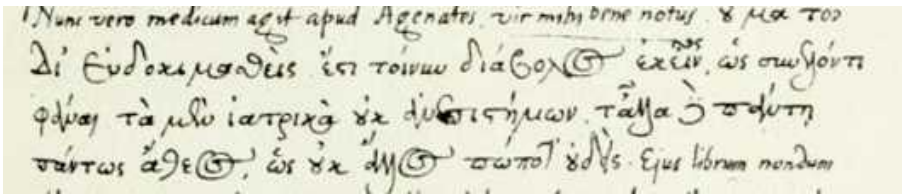 Nunc vero medicum agit apud Agenates, vir mihi bene notus, οὐ μα τον
Δί' Εὐδοκιμαθεὶς. ἔτι τοίνυν διάβολος ἐκεῖνος, ὡς συνελόντι
φάναι τὰ μὲν ἰατρικὰ οὐκ ἀνεπιστήμων, τἆλλα δὲ πάντη
πάντως ἄθεος, ὡς οὐκ ἄλλος πώποτ' οὐδεὶς. Ejus librum nondum